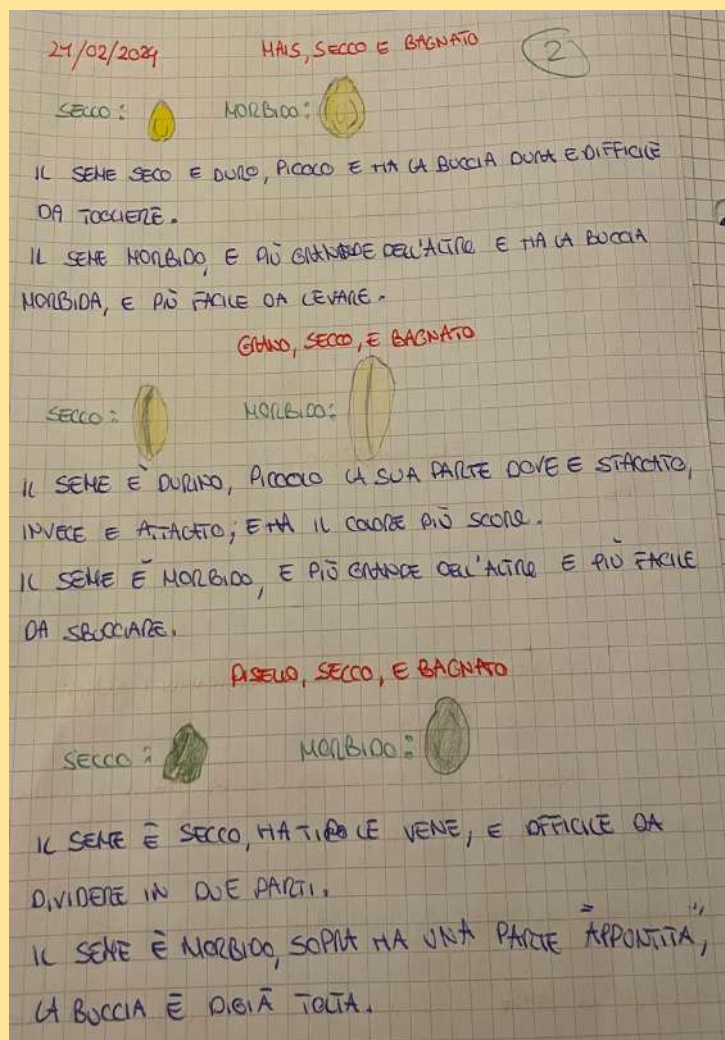 21/02/2024 MAIS, SECCO E BAGNATO 2
SECCO: MORBIDO:
IL SEME SECO E DURO, PICOLO E HA LA BUCCIA DURA E DIFFICILE
DA TOGLIERE.
IL SEME MORBIDO, E PIÙ GRANDE DELL'ALTRO E HA LA BUCCIA
MORBIDA, E PIÙ FACILE DA LEVARE.
GRANO, SECCO, E BAGNATO
SECCO: MORBIDO:
IL SEME È DURINO, PICCOLO LA SUA PARTE DOVE E STACCATO,
INVECE E ATTACATO; E HA IL COLORE PIÙ SCORO.
IL SEME È MORBIDO, E PIÙ GRANDE DELL'ALTRO E PIÙ FACILE
DA SBUCCIARE.
PISELLO, SECCO, E BAGNATO
SECCO: MORBIDO:
IL SEME È SECCO, HA TIPO LE VENE, E DIFFICILE DA
DIVIDERE IN DUE PARTI.
IL SEME È MORBIDO, SOPRA HA UNA PARTE "APPONTITA",
LA BUCCIA È DIGIÀ TOLTA.